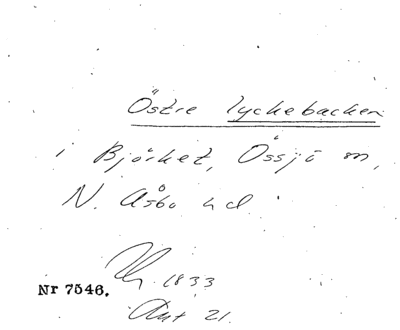 Östre Lyckebacken
i Björket, Össjö sn,
N. Åsbo hd.
1833
Nr 7546.
21.